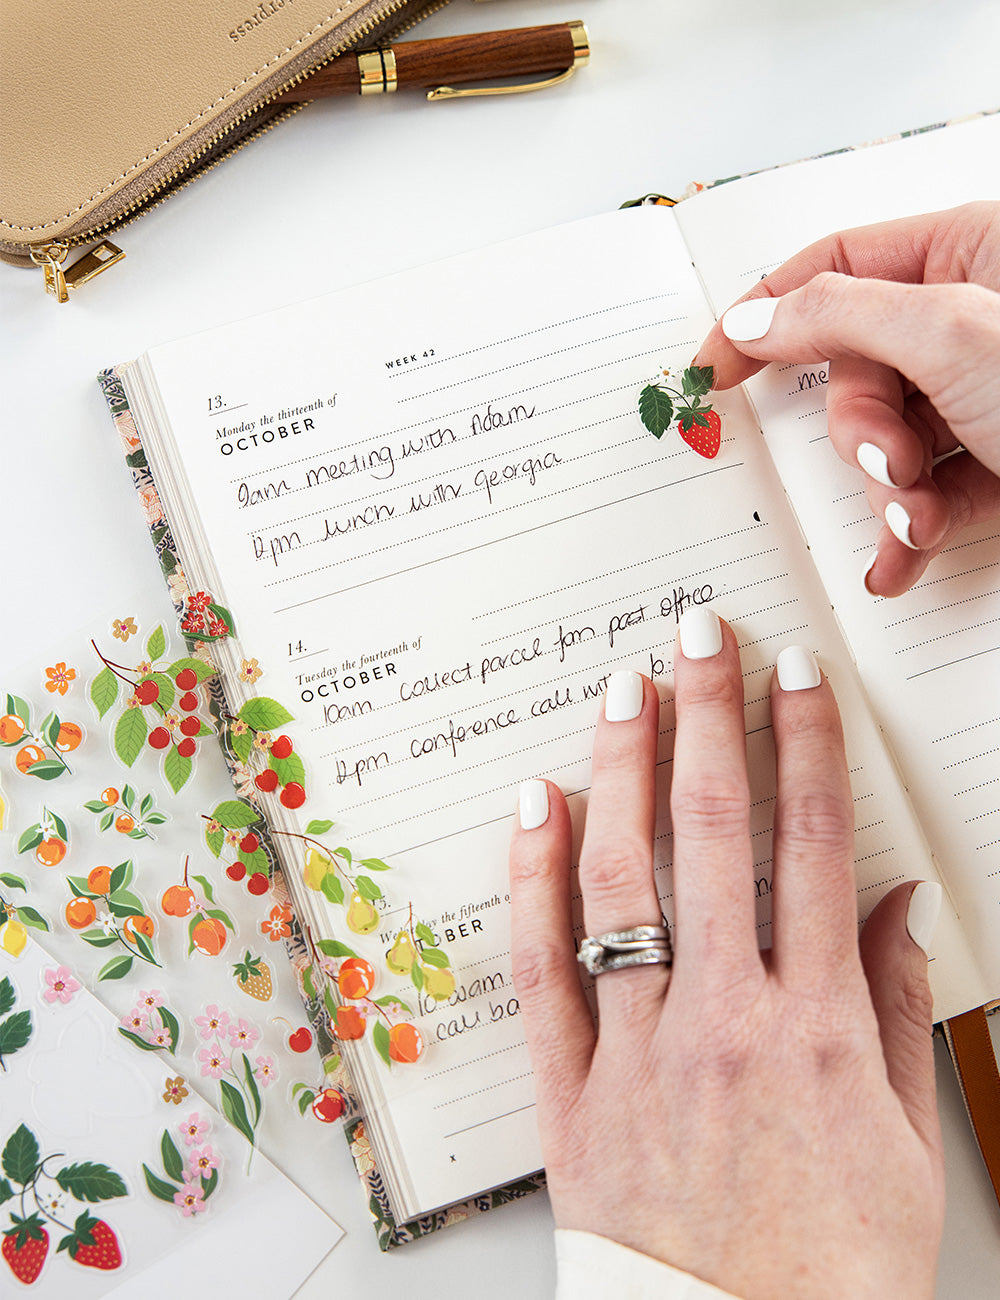 WEEK 42
13.
Monday the thirteenth of
OCTOBER
9am meeting with Adam
12pm lunch with Georgia
14.
Tuesday the fourteenth of
OCTOBER
10am collect parcel from post office
12pm conference call with b
the fifteenth of
call
x
me